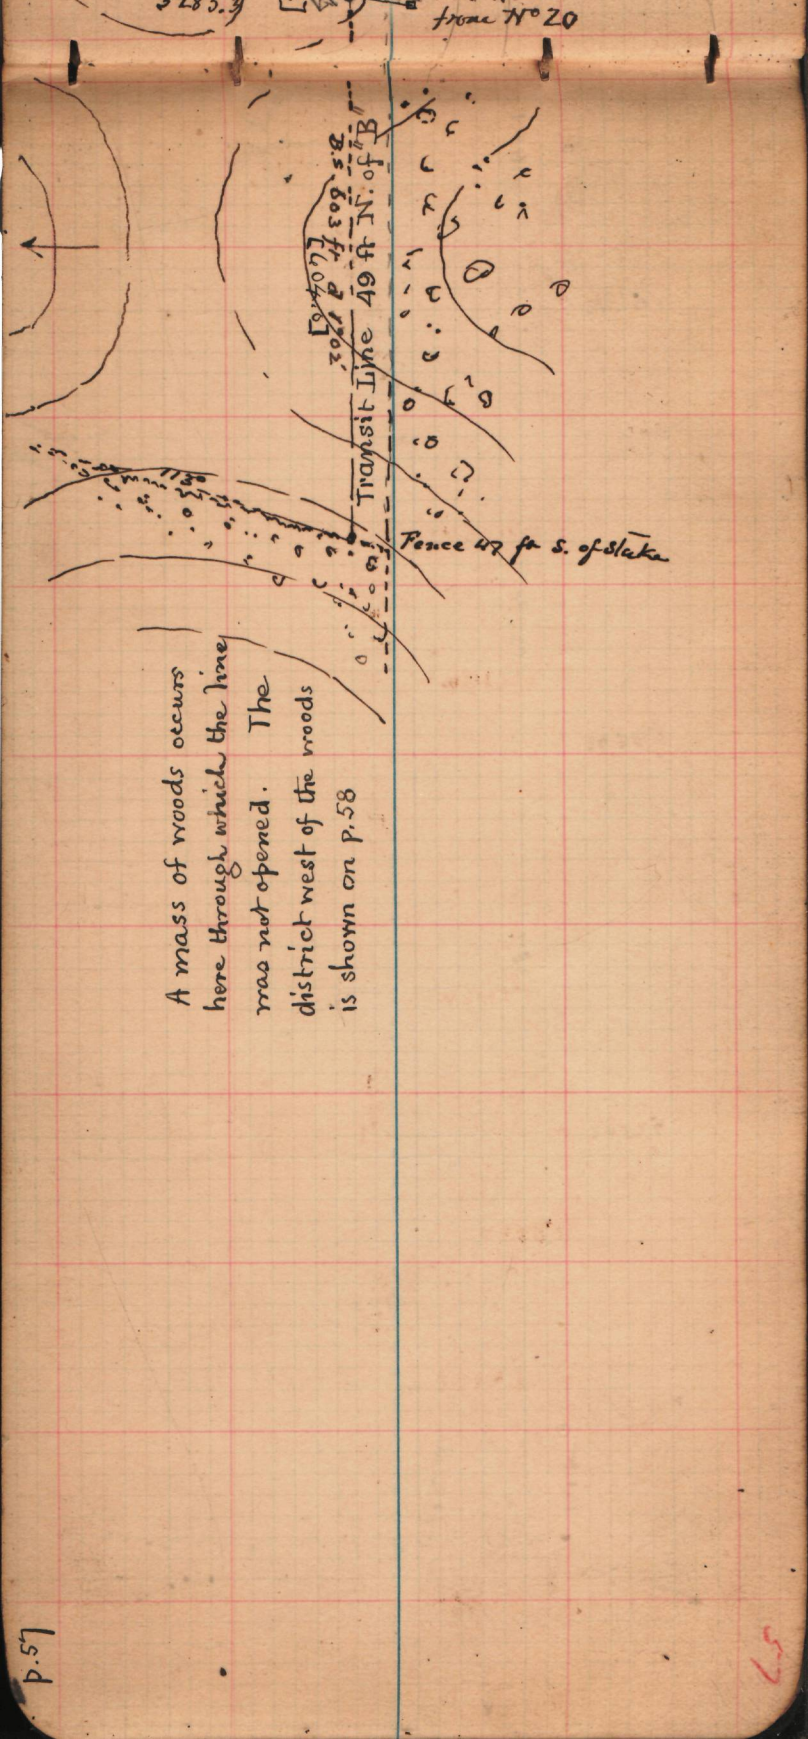 from No 20
Transit Line 49 ft N. of "B"
B.S. 603 ft @ 1902'
Fence 47 ft S. of stake
A mass of woods occurs
here through which the line
was not opened. The
district west of the woods
is shown on p.58
p.57
57